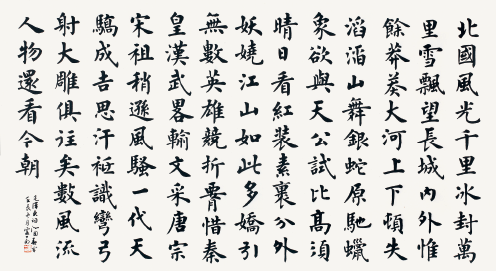 北國風光千里冰封萬
里雪飄望長城內外惟
餘莽莽大河上下頓失
滔滔山舞銀蛇原馳蠟
象欲與天公試比高須
晴日看紅裝素裹分外
妖嬈江山如此多嬌引
無數英雄競折腰惜秦
皇漢武畧輸文采唐宗
宋祖稍遜風騷一代天
驕成吉思汗衹識彎弓
射大雕俱往矣數風流
人物還看今朝
毛澤東詞沁園春雪